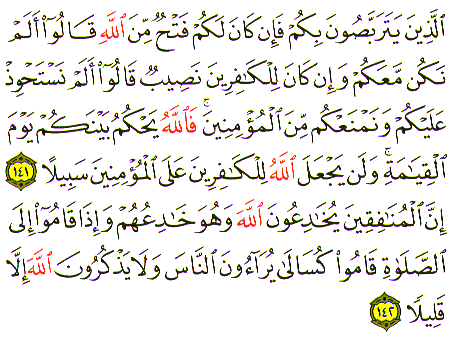 ٱلَّذِينَ يَتَرَبَّصُونَ بِكُمْ فَإِن كَانَ لَكُمْ فَتْحٌ مِّنَ ٱللَّهِ قَالُوٓا۟ أَلَمْ
نَكُن مَّعَكُمْ وَإِن كَانَ لِلْكَٰفِرِينَ نَصِيبٌ قَالُوٓا۟ أَلَمْ نَسْتَحْوِذْ
عَلَيْكُمْ وَنَمْنَعْكُم مِّنَ ٱلْمُؤْمِنِينَ ۚ فَٱللَّهُ يَحْكُمُ بَيْنَكُمْ يَوْمَ
ٱلْقِيَٰمَةِ ۗ وَلَن يَجْعَلَ ٱللَّهُ لِلْكَٰفِرِينَ عَلَى ٱلْمُؤْمِنِينَ سَبِيلًا ١٤١
إِنَّ ٱلْمُنَٰفِقِينَ يُخَٰدِعُونَ ٱللَّهَ وَهُوَ خَٰدِعُهُمْ وَإِذَا قَامُوٓا۟ إِلَى
ٱلصَّلَوٰةِ قَامُوا۟ كُسَالَىٰ يُرَآءُونَ ٱلنَّاسَ وَلَا يَذْكُرُونَ ٱللَّهَ إِلَّا
قَلِيلًا ١٤٢